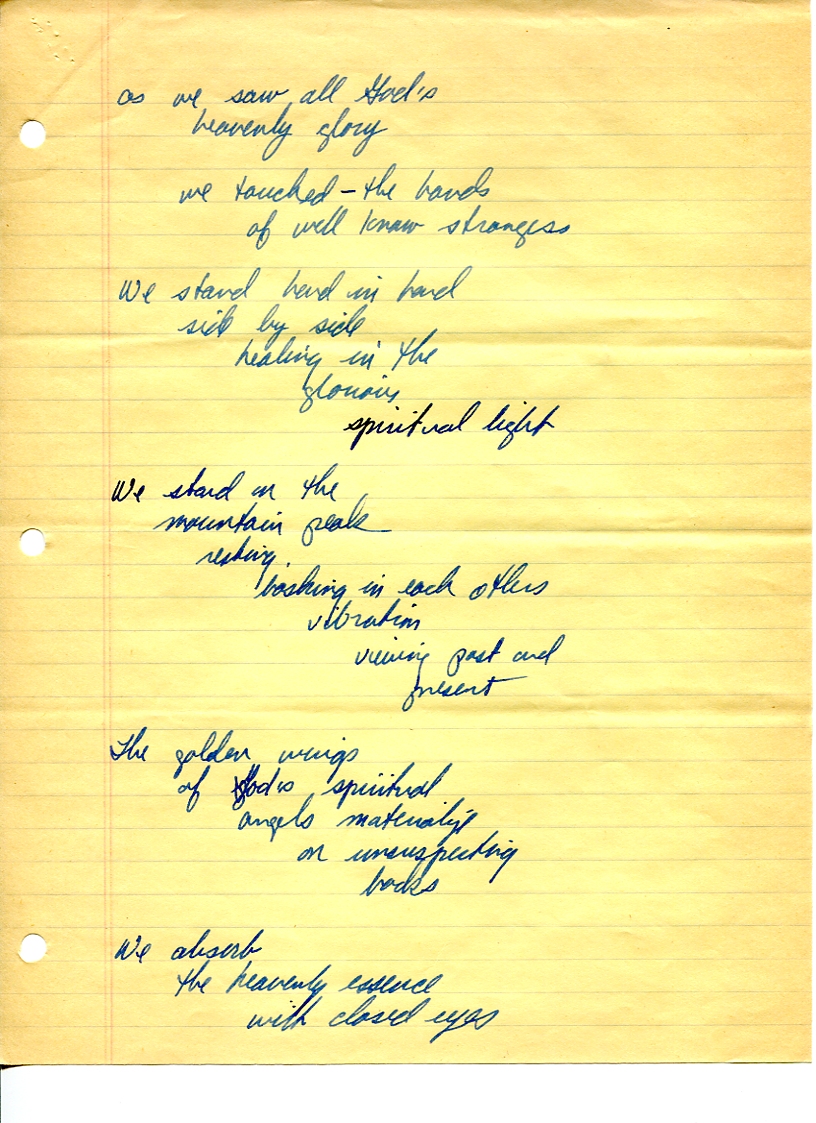 as we saw all God's
heavenly glory
we touched – the hands
of well know strangers
We stand hand in hand
side by side
healing in the
glorious
spiritual light
We stand on the
mountain peak
resting,
basking in each others
vibration
viewing past and
present
The golden wings
of God's spiritual
angels materialize
on unsuspecting
backs
We absorb
the heavenly essence
with closed eyes